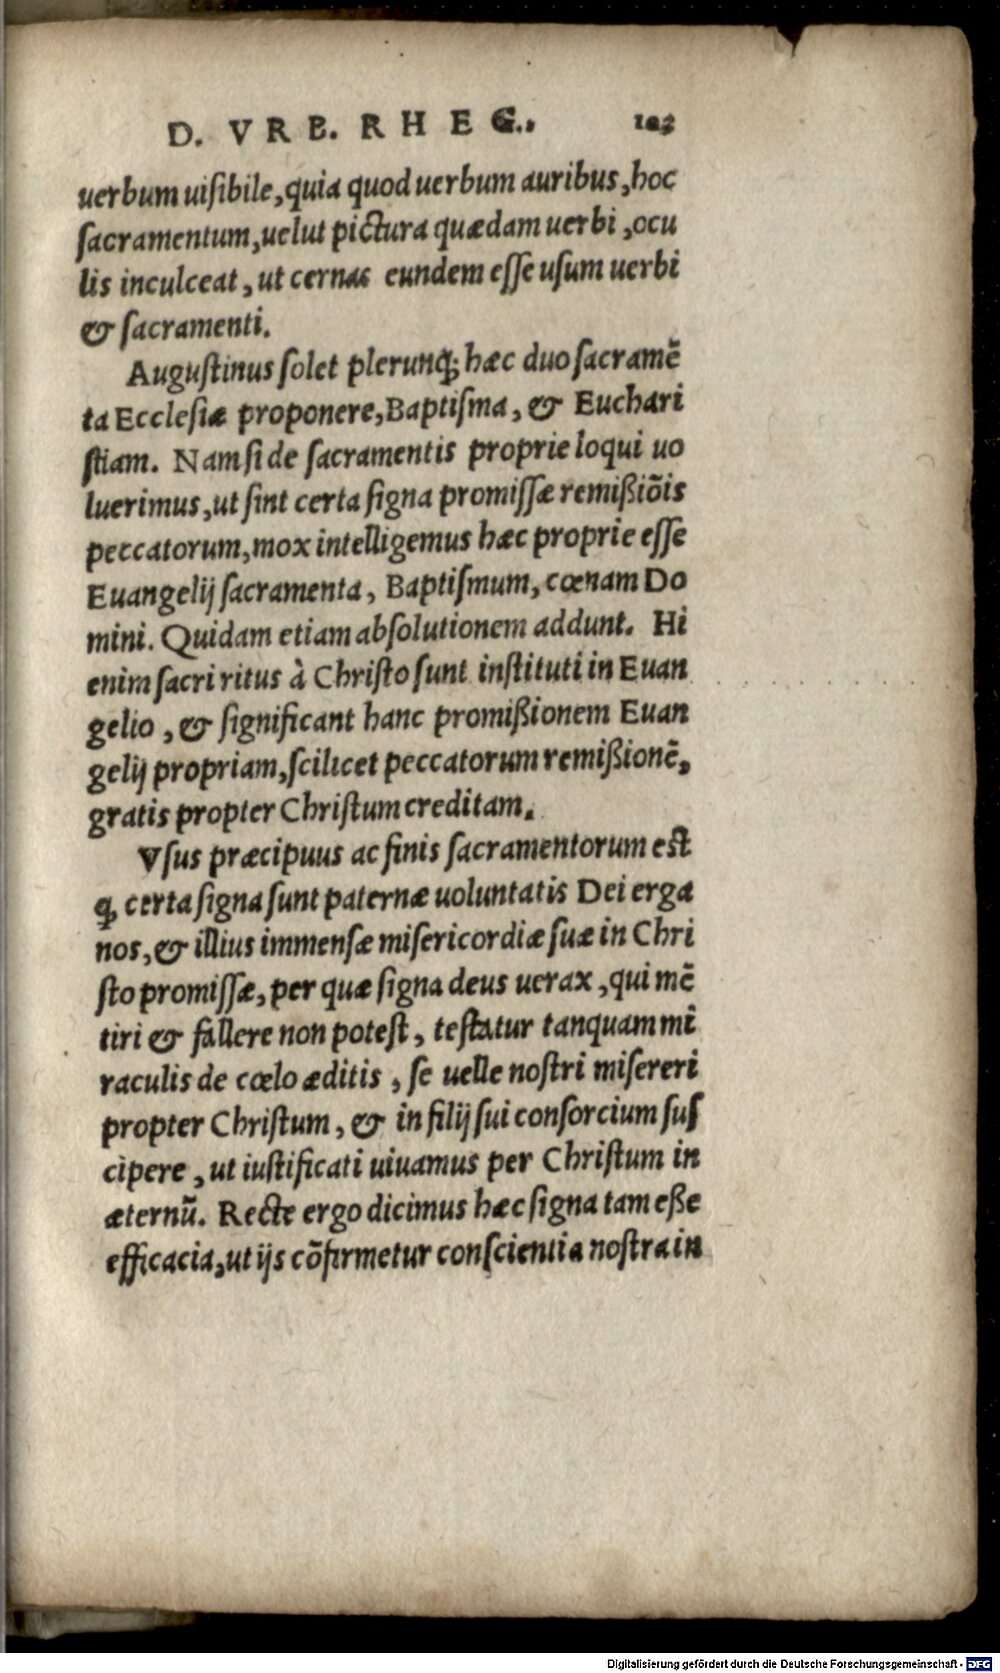 D. VRB. RHEG.
uerbum uisibile, quia quod uerbum auribus, hoc
sacramentum, uelut pictura quædam uerbi, ocu
lis inculceat, ut cernas eundem esse usum uerbi
& sacramenti.
Augustinus solet plerunq; hæc duo sacramē
ta Ecclesiæ proponere, Baptisma, & Euchari
stiam. Nam si de sacramentis proprie loqui uo
luerimus, ut sint certa signa promissæ remißiōis
peccatorum, mox intelligemus hæc proprie esse
Euangelij sacramenta, Baptismum, cœnam Do
mini. Quidam etiam absolutionem addunt. Hi
enim sacri ritus à Christo sunt instituti in Euan
gelio, & significant hanc promißionem Euan
gelij propriam, scilicet peccatorum remißionē,
gratis propter Christum creditam.
Vsus præcipuus ac finis sacramentorum est
ꝙ certa signa sunt paternæ uoluntatis Dei erga
nos, & illius immensæ misericordiæ suæ in Chri
sto promissæ, per quæ signa deus uerax, qui mē
tiri & fallere non potest, testatur tanquam mi
raculis de cœlo æditis, se uelle nostri misereri
propter Christum, & in filij sui consorcium sus
cipere, ut iustificati uiuamus per Christum in
æternū. Recte ergo dicimus hæc signa tam eße
efficacia, ut ijs cōfirmetur conscientia nostra in
Digitalisierung gefördert durch die Deutsche Forschungsgemeinschaft - DFG